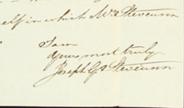 self in which Mrs Stevenson
I am
Yours most truly
Joseph G. Stevenson